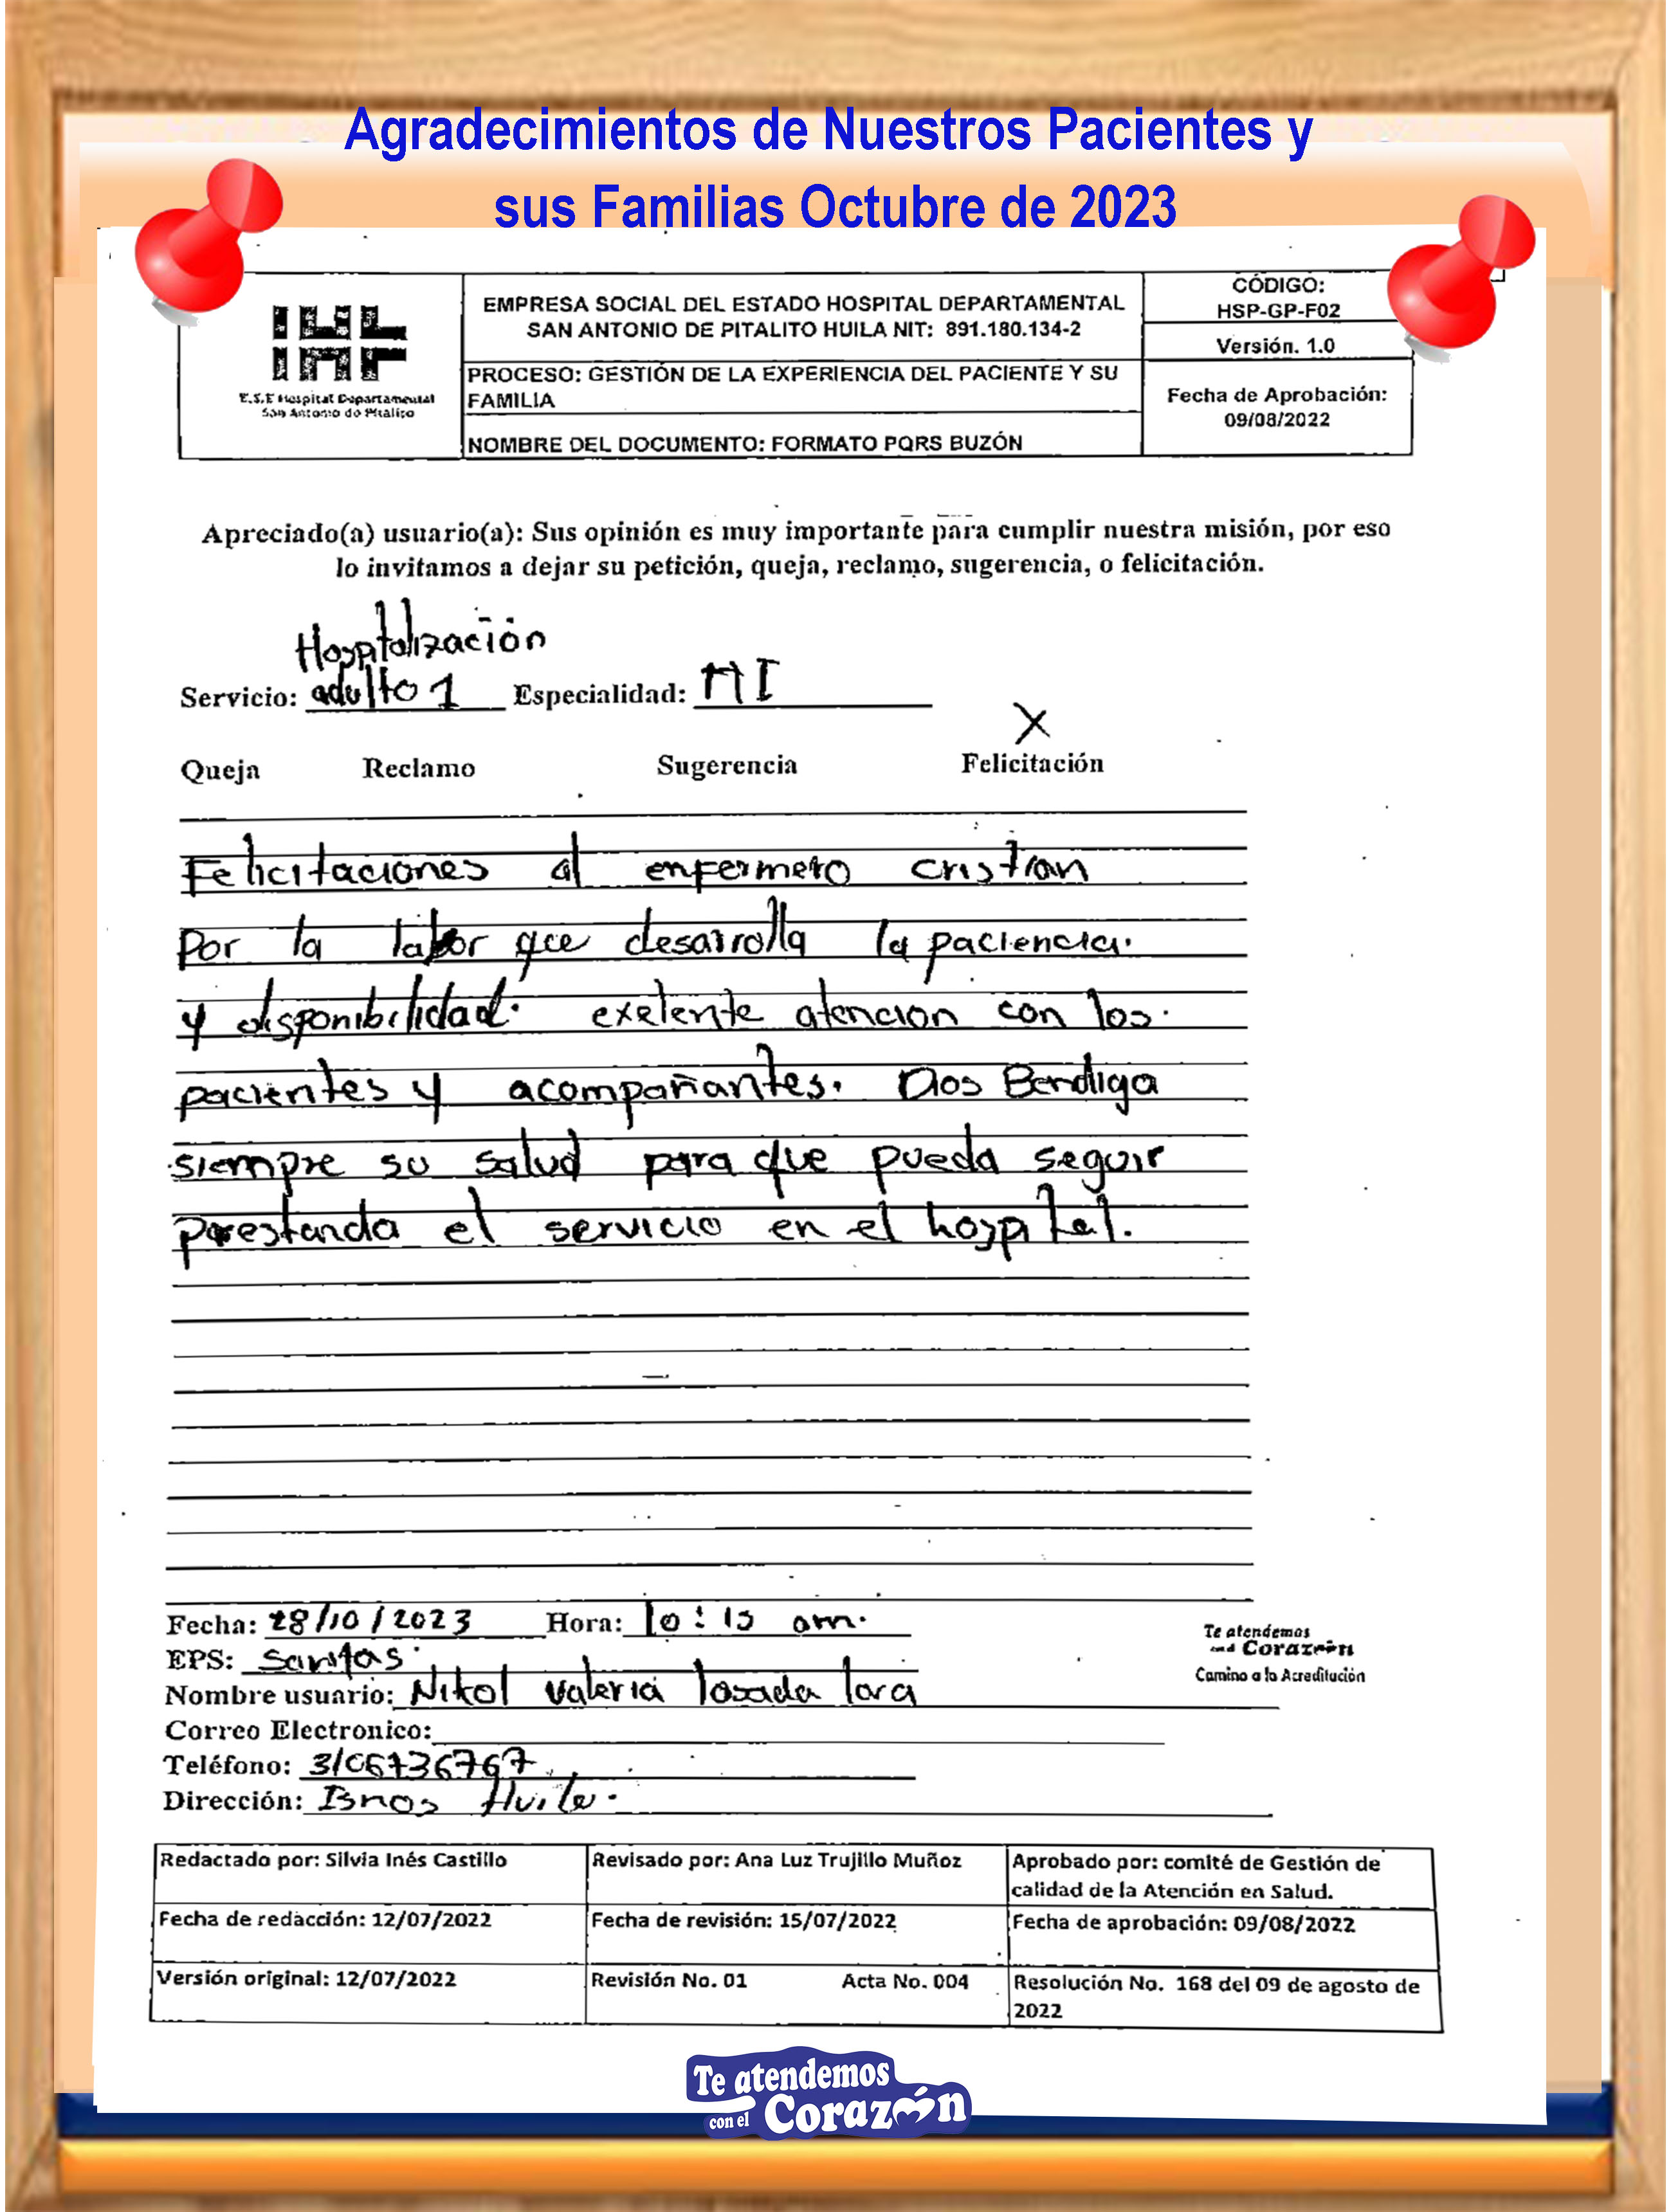 Agradecimientos de Nuestros Pacientes y
sus Familias Octubre de 2023
E.S.E Hospital Departamental
San Antonio de Pitalito
EMPRESA SOCIAL DEL ESTADO HOSPITAL DEPARTAMENTAL
SAN ANTONIO DE PITALITO HUILA NIT: 891.180.134-2
PROCESO: GESTIÓN DE LA EXPERIENCIA DEL PACIENTE Y SU
FAMILIA
NOMBRE DEL DOCUMENTO: FORMATO PQRS BUZÓN
CÓDIGO:
HSP-GP-F02
Versión. 1.0
Fecha de Aprobación:
09/08/2022
Apreciado(a) usuario(a): Sus opinión es muy importante para cumplir nuestra misión, por eso
lo invitamos a dejar su petición, queja, reclamo, sugerencia, o felicitación.
Hospitalización
Servicio: adulto 1 Especialidad: MI
X
Queja Reclamo Sugerencia Felicitación
Felicitaciones al enfermero cristian
Por la labor que desarrolla la paciencia.
y disponibilidad. exelente atencion con los.
pacientes y acompañantes. Dios Bendiga
siempre su salud para que pueda seguir
prestando el servicio en el hospital.
Fecha: 28/10/2023 Hora: 10:15 am.
EPS: Sanitas
Nombre usuario: Nikol Valeria losada lara
Correo Electronico:
Teléfono: 3106736767
Dirección: Isnos Huila.
Te atendemos
con el Corazón
Camino a la Acreditación
Redactado por: Silvia Inés Castillo Revisado por: Ana Luz Trujillo Muñoz Aprobado por: comité de Gestión de
calidad de la Atención en Salud.
Fecha de redacción: 12/07/2022 Fecha de revisión: 15/07/2022 Fecha de aprobación: 09/08/2022
Versión original: 12/07/2022 Revisión No. 01 Acta No. 004 Resolución No. 168 del 09 de agosto de
2022
Te atendemos
con el Corazón